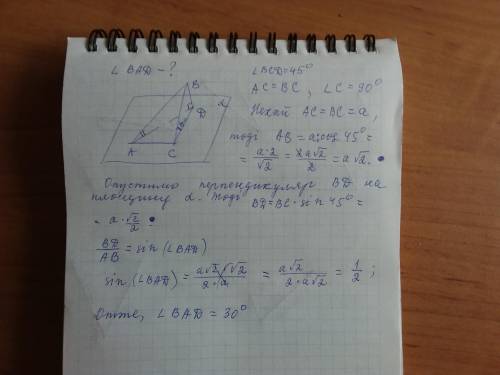 ∠ BAD - ?
∠BCD = 45°
AC = BC, ∠C = 90°
Нехай AC = BC = a,
тоді AB = a : cos 45° =
= a·2/√2 = 2a√2/2 = a√2.
B
α
D
A
C
Опустимо перпендикуляр BD на
площину α. Тоді BD = BC · sin 45° =
= a · √2/2.
BD/AB = sin (∠BAD)
sin (∠BAD) = = a√2/2·a√2 = 1/2 ;
Отже, ∠BAD = 30°